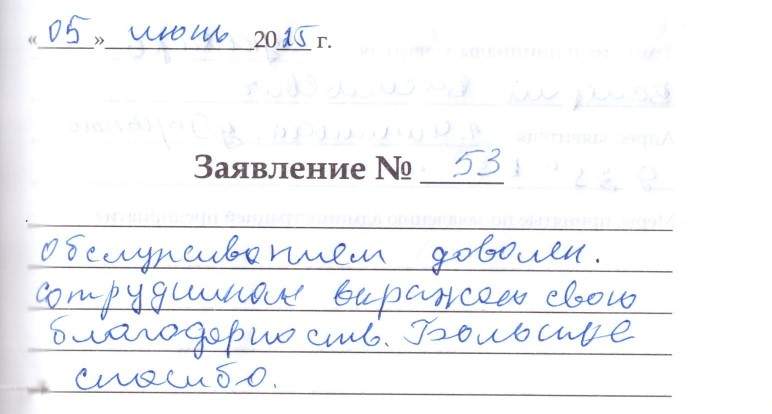 «05» июнь 2015 г.
Заявление № 53
обслуживанием доволен.
сотрудникам выражаю свою
благодарность. Большое
спасибо.